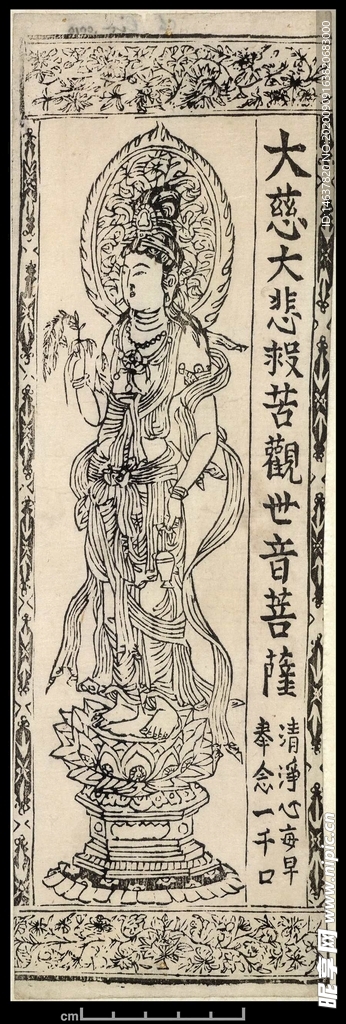 大慈大悲救苦觀世音菩薩
清淨心每早
奉念一千口
ID:14537820 NO:20200919163820683000
昵享网 www.nipic.cn
cm